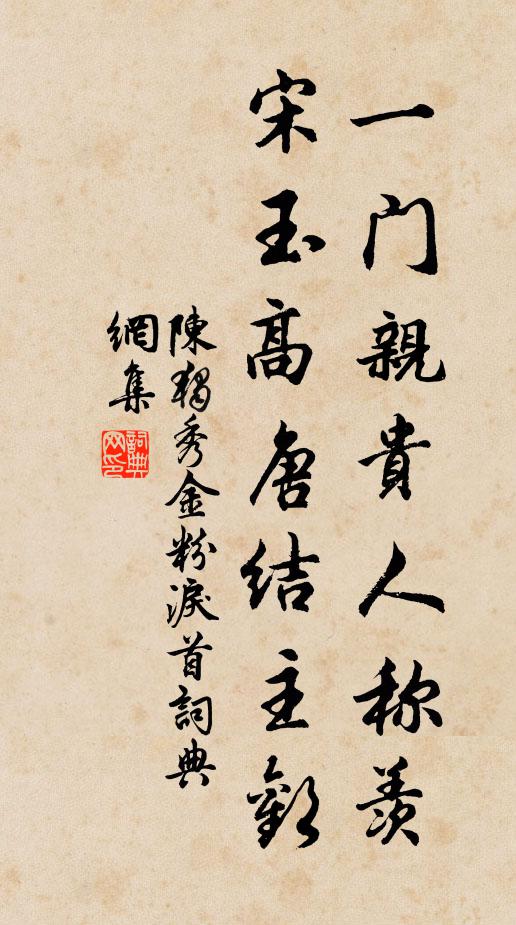 一門親貴人称羨
宋玉高唐結主歡
陳獨秀金粉淚首詞典
網集
詞典
网印